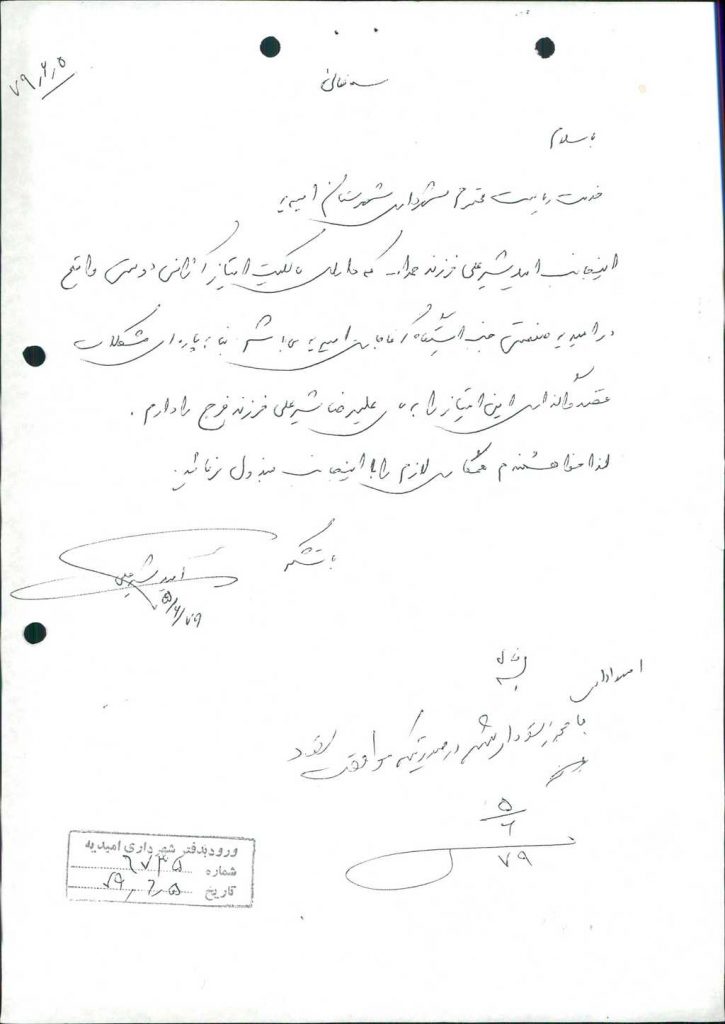 ۷۹٫۶٫۵
بسمه تعالی
با سلام
خدمت ریاست محترم شهرداری شهرستان امیدیه
اینجانب امید شیرعلی فرزند که دارای مالکیت امتیاز آژانس دوستی واقع
در امیدیه صنعتی جنب ایستگاه آغاجاری امیدیه می باشم بنا به پاره ای مشکلات
قصد واگذاری این امتیاز را به آقای علیرضا شیرعلی فرزند فرج را دارم .
لذا خواهشمندم همکاری لازم را با اینجانب مبذول فرمائید.
با تشکر
امید شیرعلی
۷۹/۶/۵
بسمه تعالی
امور اداری
با موافقت گردد
۵
۶
۷۹
ورود بدفتر شهرداری امیدیه
شماره ۶۷۳۵
تاریخ ۷۹٫۶٫۵